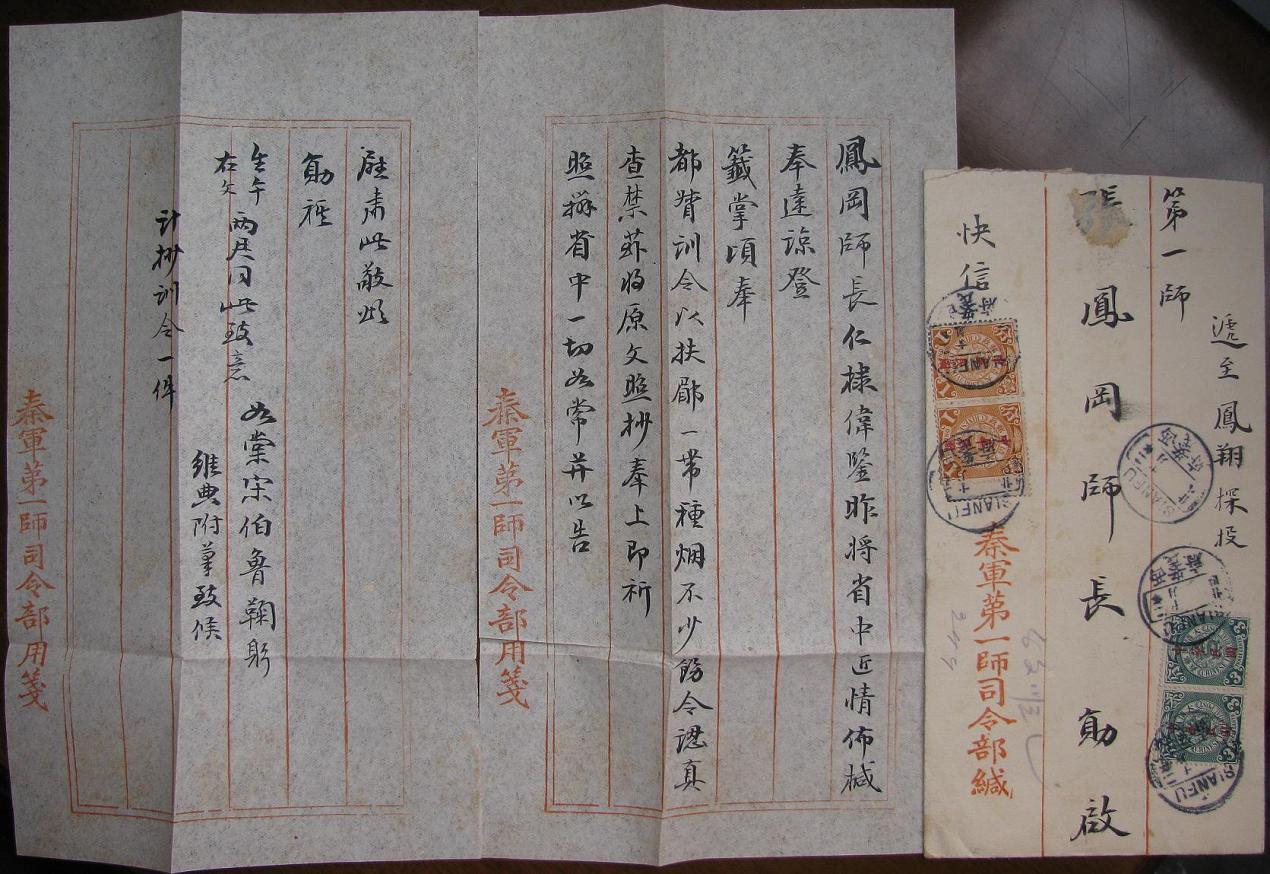 遞至鳳翔探投
第一師
張鳳岡師長勛啟
快信
秦軍第一師司令部緘
SIANFU
SIANFU
SIANFU
SIANFU
SIANFU
鳳岡師長仁棣偉鑒昨將省中近情佈械
奉達諒登
籤掌頃奉
都督訓令以扶郿一帶種烟不少飭令認真
查禁茲將原文照抄奉上即祈
照辦省中一切如常并以告
秦軍第一師司令部用箋
慰肅此敬頌
勛祺
如棠宋伯魯鞠躬
兩君同此致意
維典附筆致候
計抄訓令一件
秦軍第一師司令部用箋